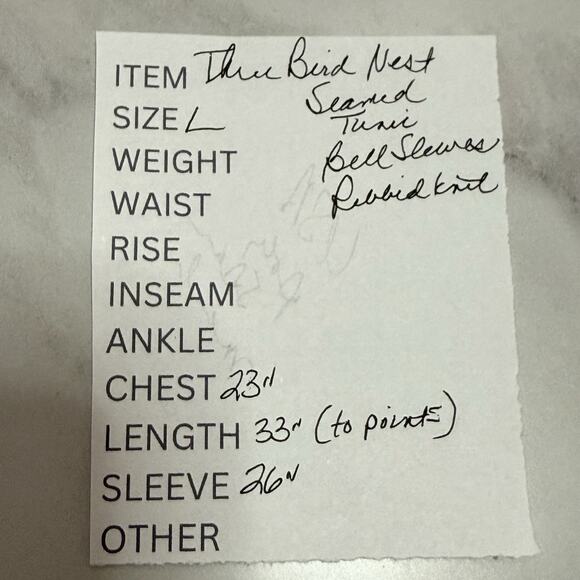 ITEM Three Bird Nest
Seamed
SIZE L Tunic
WEIGHT Bell Sleeves
WAIST Ribbed Knit
RISE
INSEAM
ANKLE
CHEST 23"
LENGTH 33" (to points)
SLEEVE 26"
OTHER